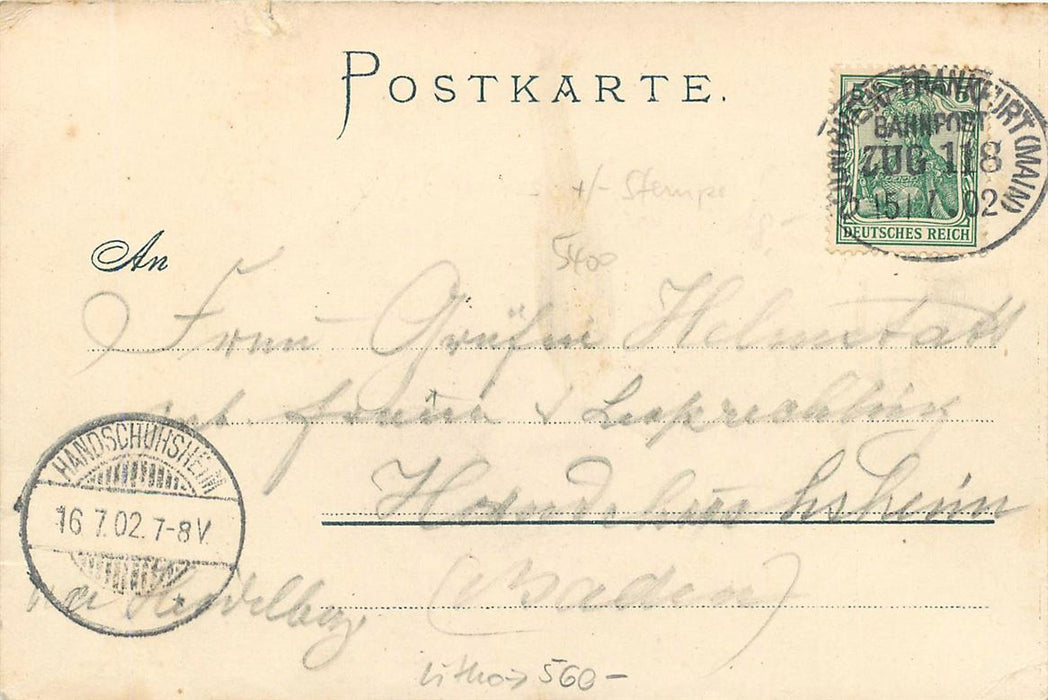 POSTKARTE.
FRANKFURT (MAIN)
BAHNPOST
ZUG 118
15 7 02
DEUTSCHES REICH
+/- Stempel
5400
An
Frau Gräfin Helmstatt
Handschuhsheim
HANDSCHUHSHEIM
16 7.02. 7-8V.
(Baden)
Heidelberg
Litho 560-